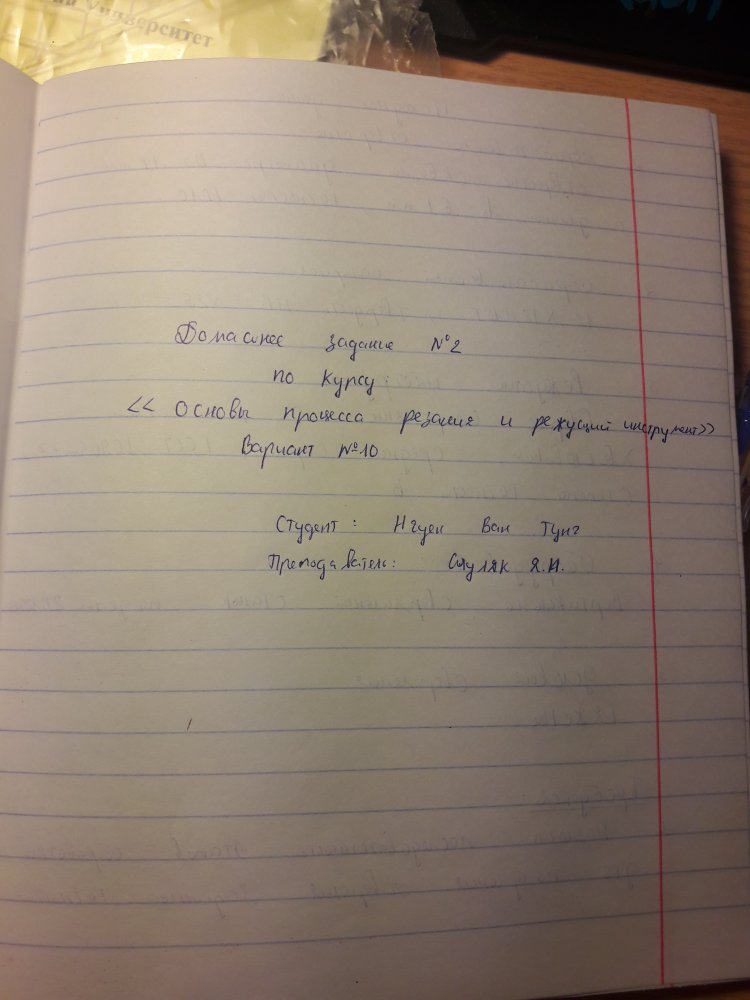 Университет
Домашнее задание №2
по курсу
<< Основы процесса резания и режущий инструмент>>
Вариант №10
Студент: Нгуен Ван Тунг
Преподаватель: Я.И.